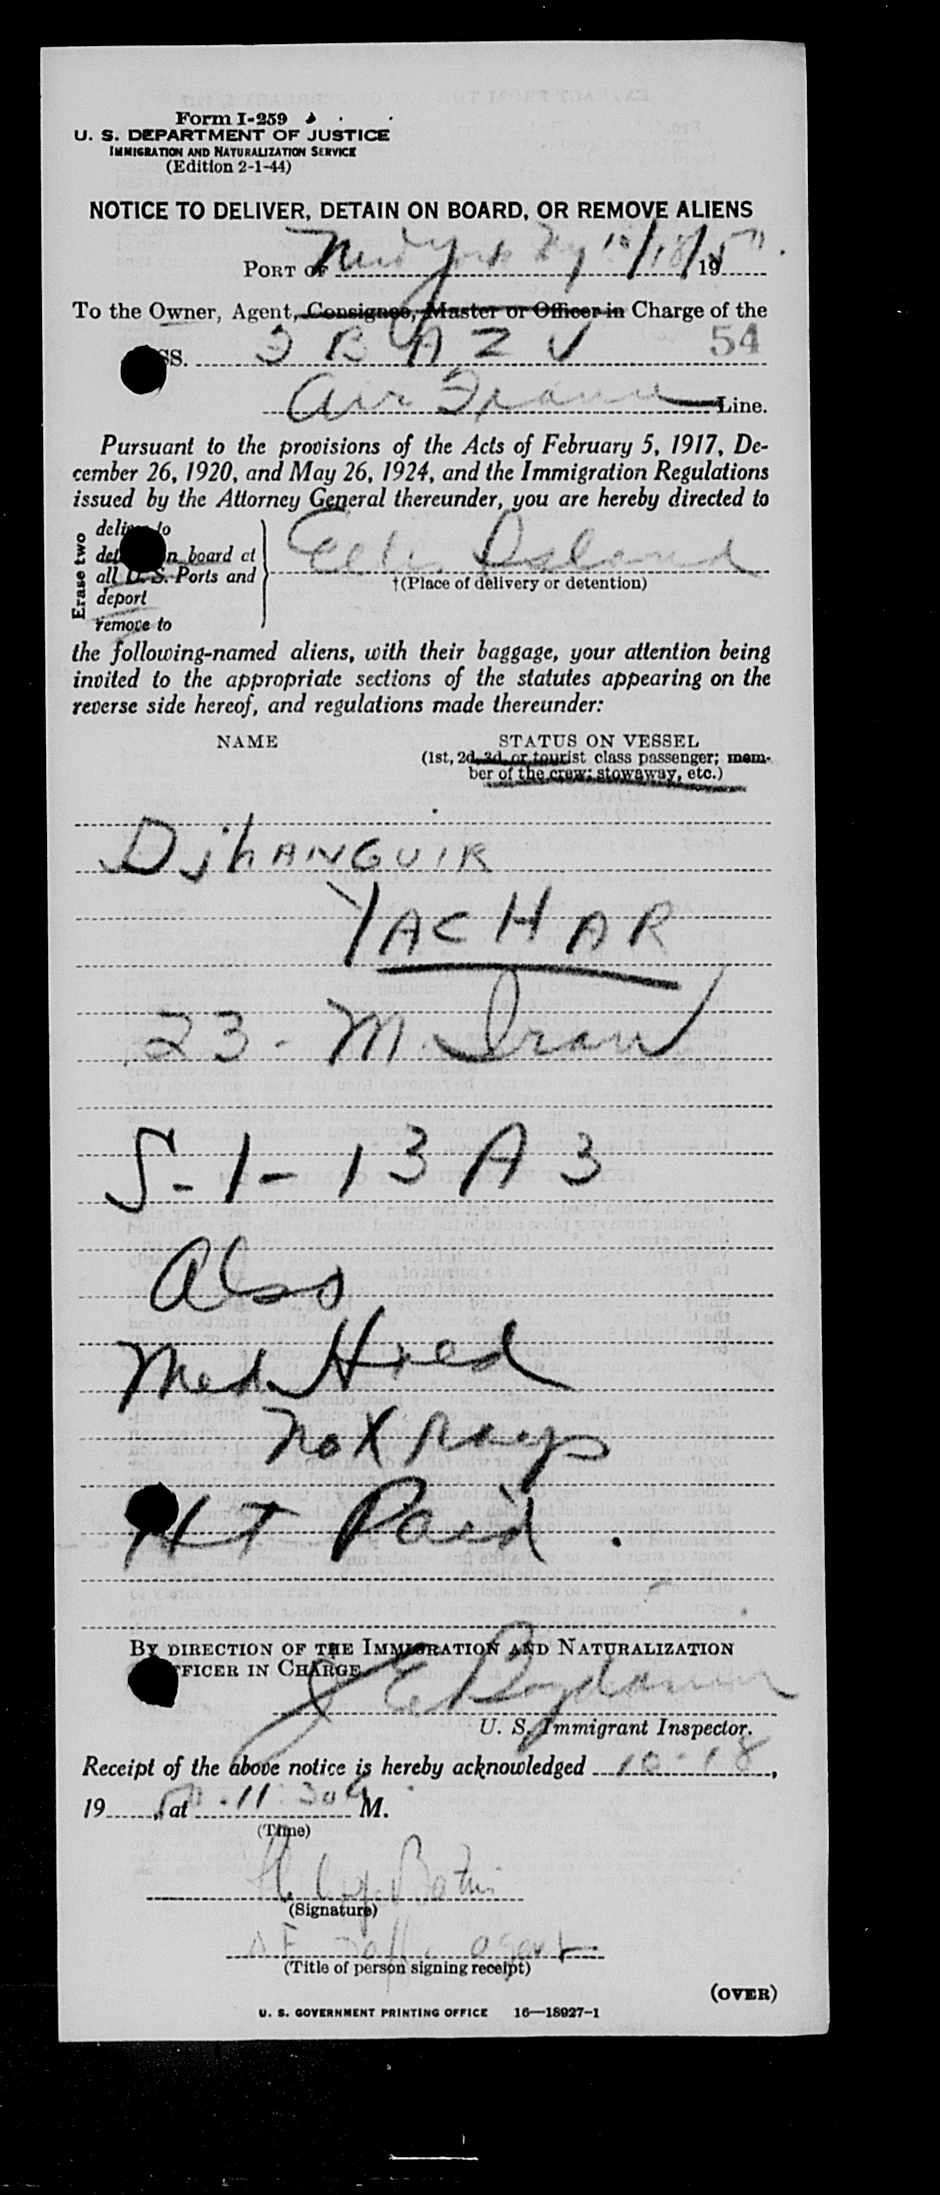 Form I-259
U. S. DEPARTMENT OF JUSTICE
IMMIGRATION AND NATURALIZATION SERVICE
(Edition 2-1-44)
NOTICE TO DELIVER, DETAIN ON BOARD, OR REMOVE ALIENS
PORT OF New York Ny 10/18/1950
To the Owner, Agent, Consignee, Master or Officer in Charge of the
SS. F B A Z U 54
Air France Line.
Pursuant to the provisions of the Acts of February 5, 1917, De-
cember 26, 1920, and May 26, 1924, and the Immigration Regulations
issued by the Attorney General thereunder, you are hereby directed to
Erase two
deliver to
detain on board at
all U. S. Ports and
deport
remove to
Ellis Island
†(Place of delivery or detention)
the following-named aliens, with their baggage, your attention being
invited to the appropriate sections of the statutes appearing on the
reverse side hereof, and regulations made thereunder:
NAME STATUS ON VESSEL
(1st, 2d, 3d, or tourist class passenger; mem-
ber of the crew; stowaway, etc.)
DjhANGUIR
YACHAR
23 - M. Iran
S-1-13 A 3
Also
Med. Hred
No X Rays
HT Paid .
BY DIRECTION OF THE IMMIGRATION AND NATURALIZATION
OFFICER IN CHARGE
U. S. Immigrant Inspector.
Receipt of the above notice is hereby acknowledged 10-18,
1950, at 11:30 A M.
(Time)
(Signature)
AF agent
(Title of person signing receipt)
(OVER)
U. S. GOVERNMENT PRINTING OFFICE 16—18927-1